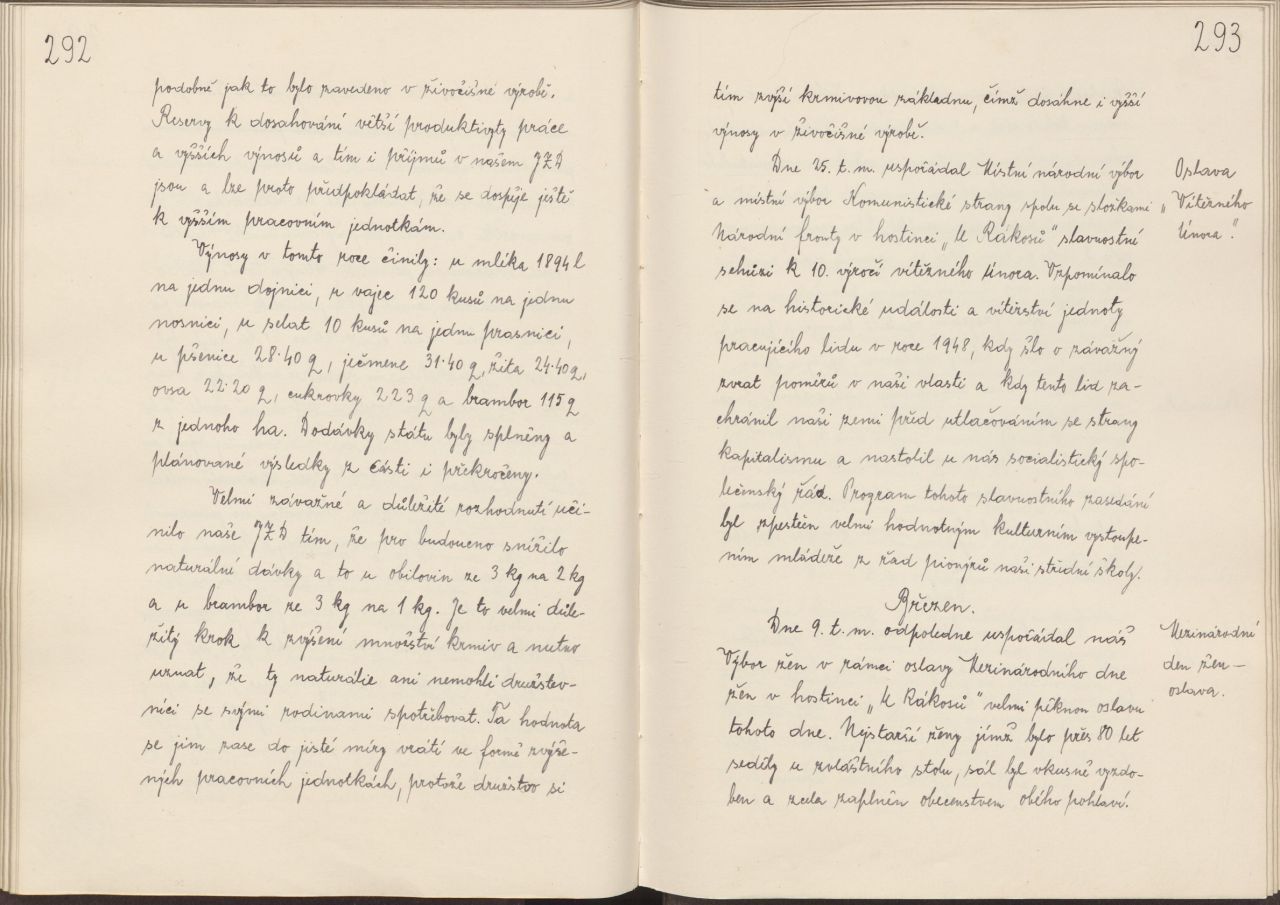 292
podobně jak to bylo zavedeno v živočišné výrobě.
Reservy k dosahování větší produktivyty práce
a vyšších výnosů a tím i příjmů v našem JZD
jsou a lze proto předpokládat, že se dospěje ještě
k vyšším pracovním jednotkám.
Výnosy v tomto roce činily: u mléka 1894 l
na jednu dojnici, u vajec 120 kusů na jednu
nosnici, u selat 10 kusů na jednu prasnici,
u pšenice 28·40 q, ječmene 31·40 q, žita 24·40 q,
ovsa 22·20 q, cukrovky 223 q a brambor 115 q
z jednoho ha. Dodávky státu byly splněny a
plánované výsledky z části i překročeny.
Velmi závažné a důležité rozhodnutí uči-
nilo naše JZD tím, že pro budoucno snížilo
naturální dávky a to u obilovin ze 3 kg na 2 kg
a u brambor ze 3 kg na 1 kg. Je to velmi důle-
žitý krok k zvýšení množství krmiv a nutno
uznat, že ty naturálie ani nemohli družstev-
níci se svými rodinami spotřebovat. Ta hodnota
se jim zase do jisté míry vrátí ve formě zvýše-
ných pracovních jednotkách, protože družstvo si
293
tím zvýší krmivovou základnu, čímž dosáhne i vyšší
výnosy v živočišné výrobě.
Dne 25. t. m. uspořádal Místní národní výbor
a místní výbor Komunistické strany spolu se složkami
Národní fronty v hostinci „U Rákosů" slavnostní
schůzi k 10. výročí vítězného února. Vzpomínalo
se na historické události a vítězství jednoty
pracujícího lidu v roce 1948, kdy šlo o závažný
zvrat poměrů v naší vlasti a kdy tento lid za-
chránil naši zemi před utlačováním se strany
kapitalismu a nastolil u nás socialistický spo-
lečenský řád. Program tohoto slavnostního zasedání
byl zpestřen velmi hodnotným kulturním vystoupe-
ním mládeže z řad pionýrů naší střední školy.
Oslava
„Vítězného
Února".
Březen.
Dne 9. t. m. odpoledne uspořáídal náš
Výbor žen v rámci oslavy Mezinárodního dne
žen v hostinci „U Rákosů" velmi pěknou oslavu
tohoto dne. Nejstarší ženy jímž bylo přes 80 let
seděly u zvláštního stolu, sál byl vkusně vyzdo-
ben a zcela zaplněn obecenstvem obého pohlaví.
Mezinárodní
den žen –
oslava.